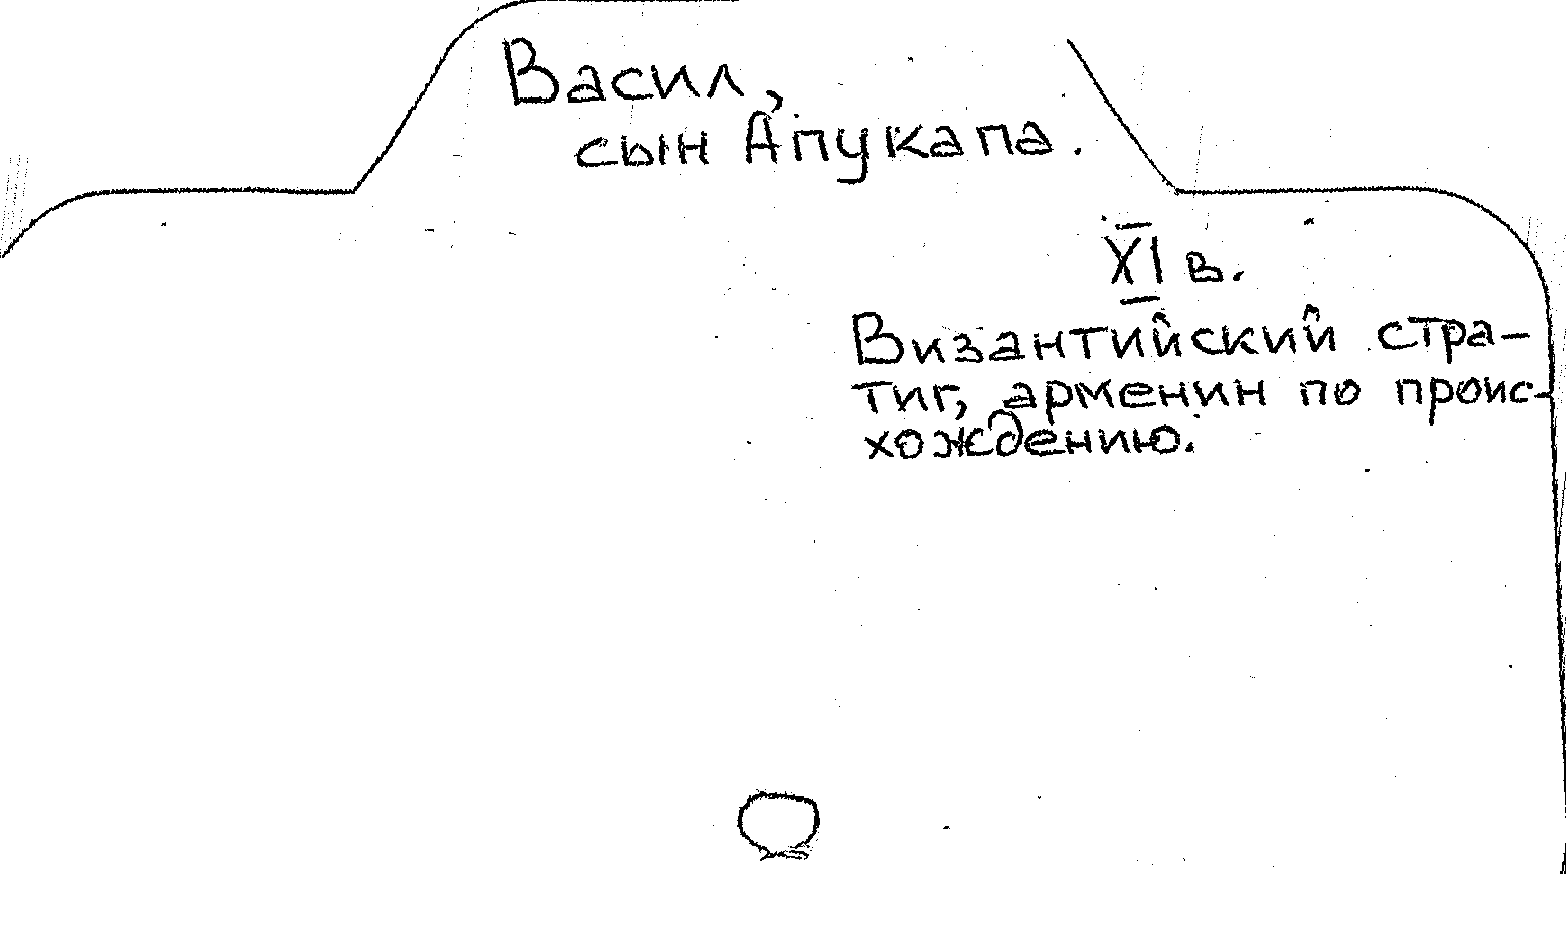 Васил,
сын Апукапа.
XI в.
Византийский стра-
тиг, арменин по проис-
хождению.